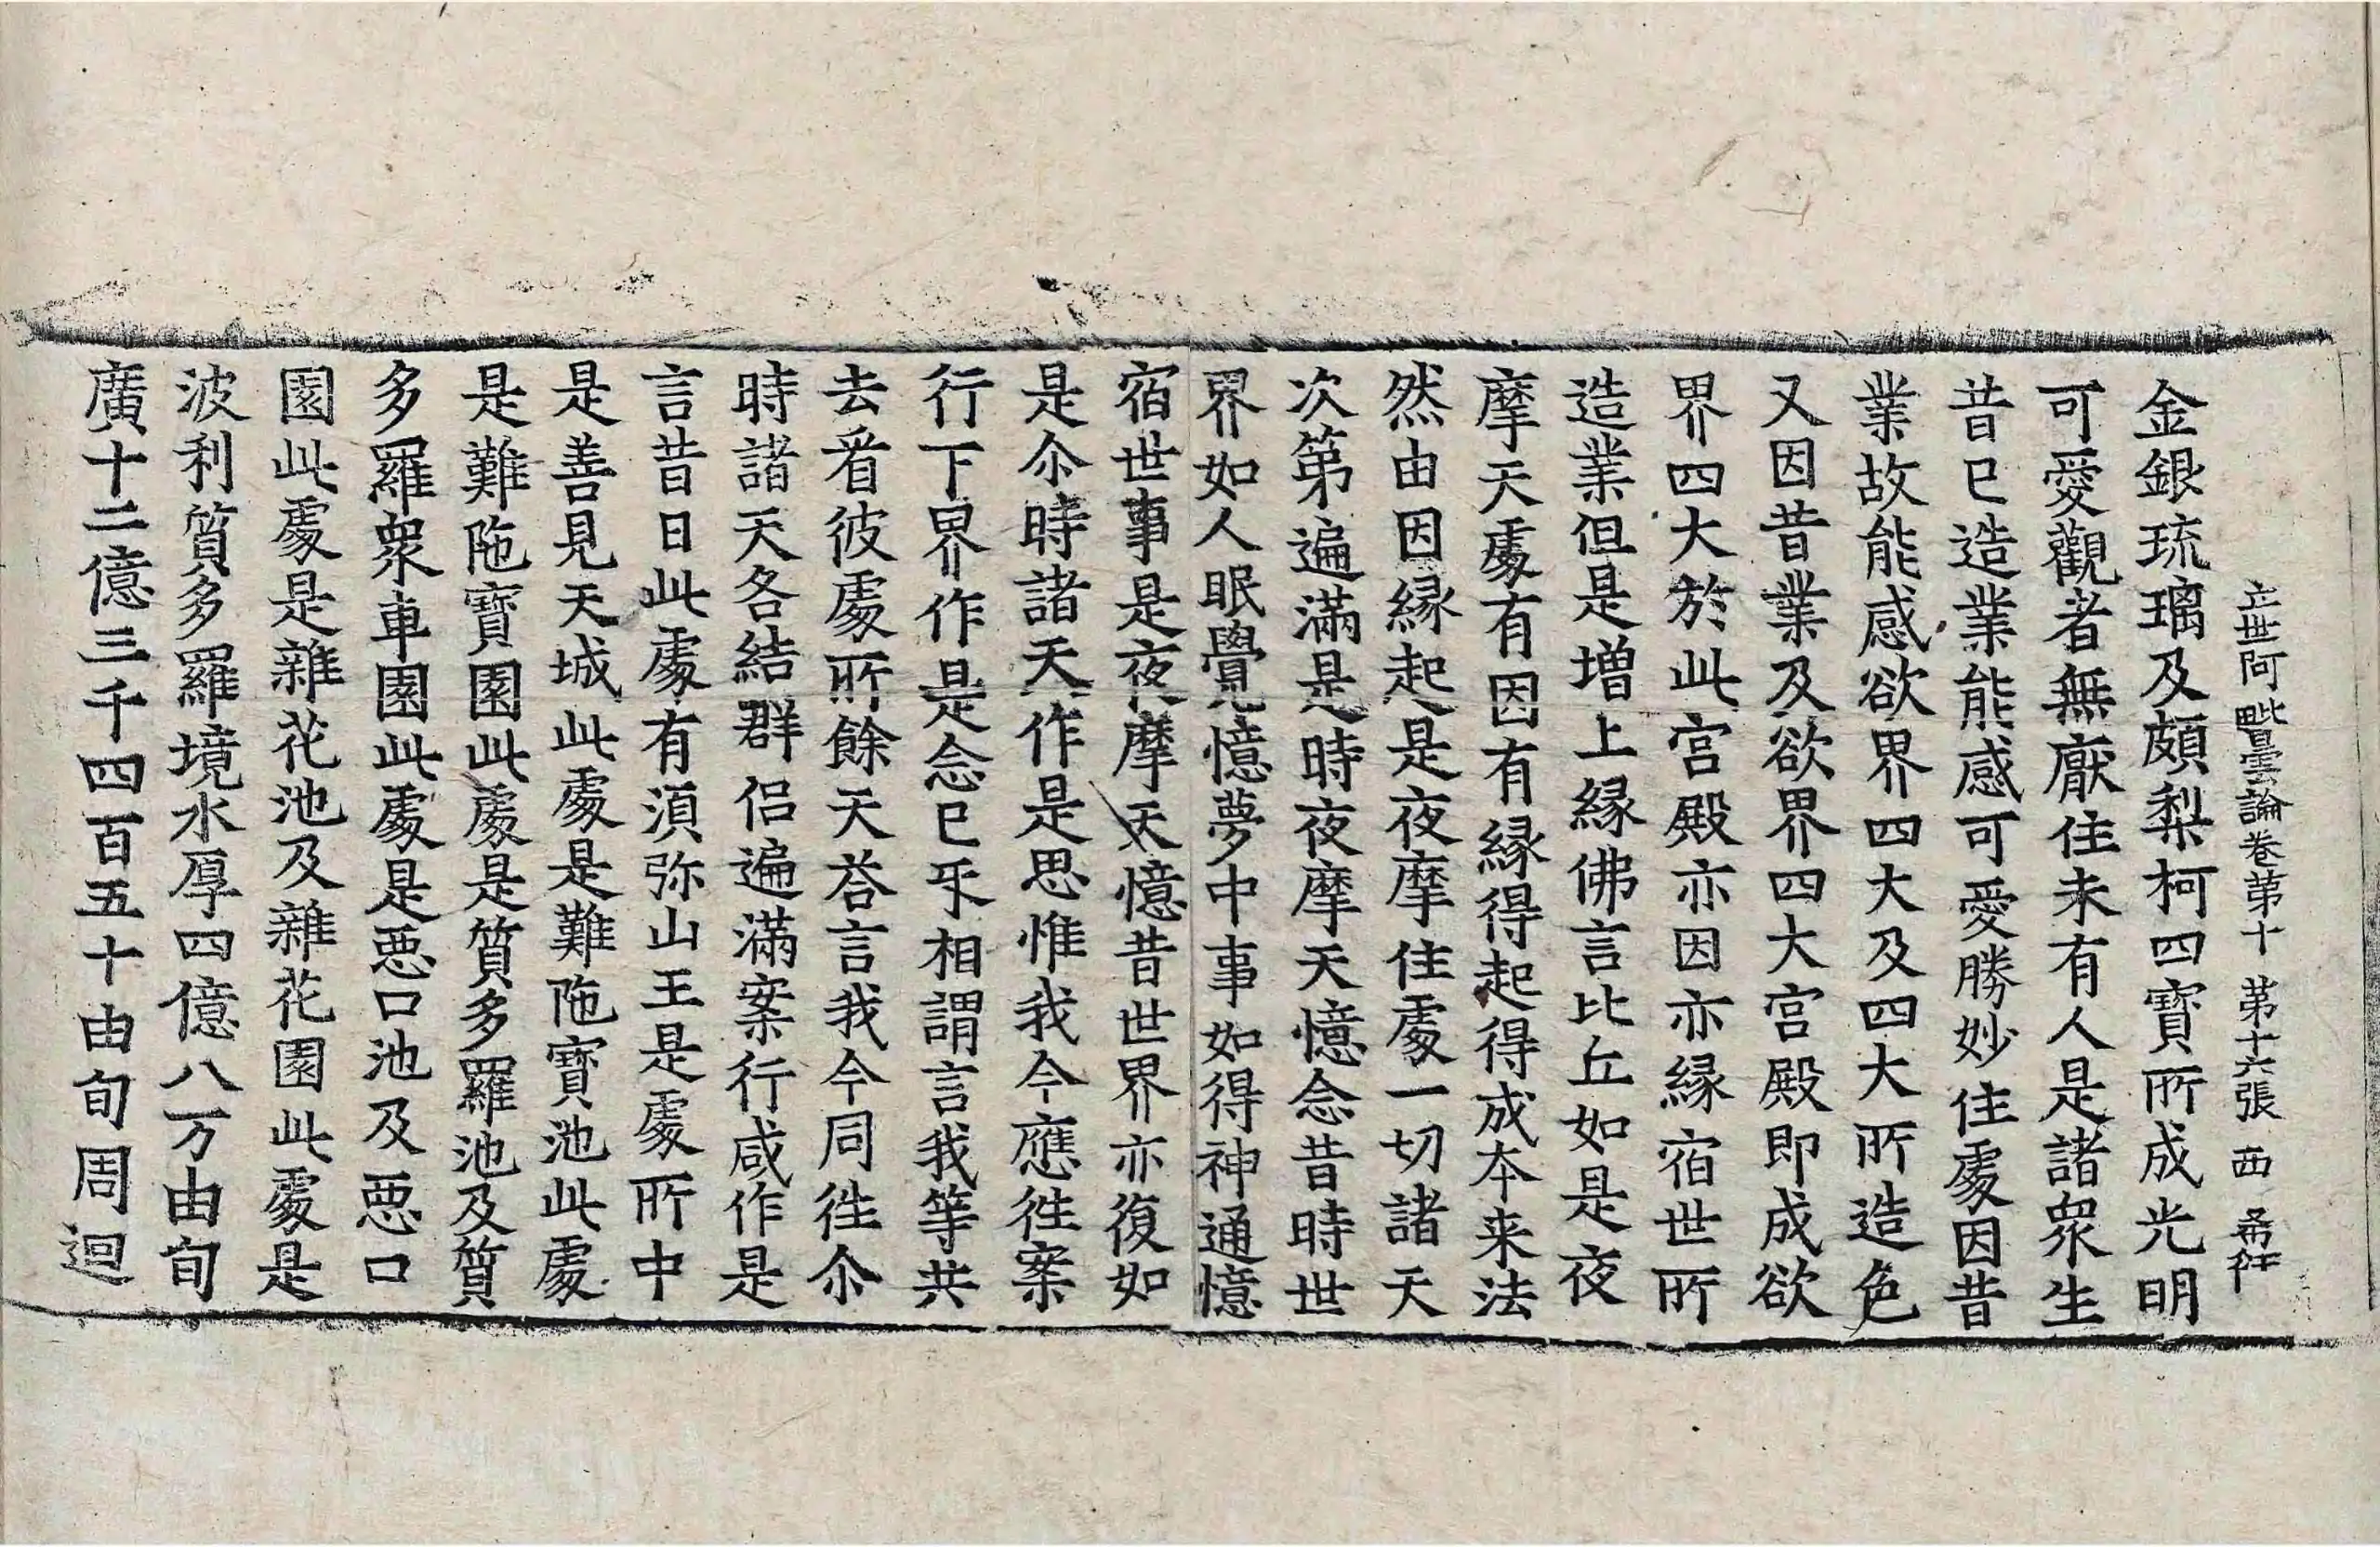 立世阿毗曇論卷第十 第十六張 西
金銀琉璃及頗梨柯四寳所成光明
可愛觀者無厭住未有人是諸衆生
昔已造業能感可愛勝妙住處因昔
業故能感欲界四大及四大所造色
又因昔業及欲界四大宫殿即成欲
界四大於此宫殿亦因亦縁宿世所
造業但是增上縁佛言比丘如是夜
摩天處有因有縁得起得成夲来法
然由因縁起是夜摩住處一切諸天
次第遍滿是時夜摩天憶念昔時世
界如人眠覺憶夢中事如得神通憶
宿世事是夜摩天憶昔世界亦復如
是尒時諸天作是思惟我今應徃案
行下界作是念已㸦相謂言我等共
去㸔彼處所餘天荅言我今同徃尒
時諸天各結群侣遍滿案行咸作是
言昔日此處有湏弥山王是處所中
是善見天城此處是難陁寳池此處
是難陁寳園此處是質多羅池及質
多羅衆車園此處是惡口池及惡口
園此處是雜花池及雜花園此處是
波利質多羅境水厚四億八万由旬
廣十二億三千四百五十由旬周迴